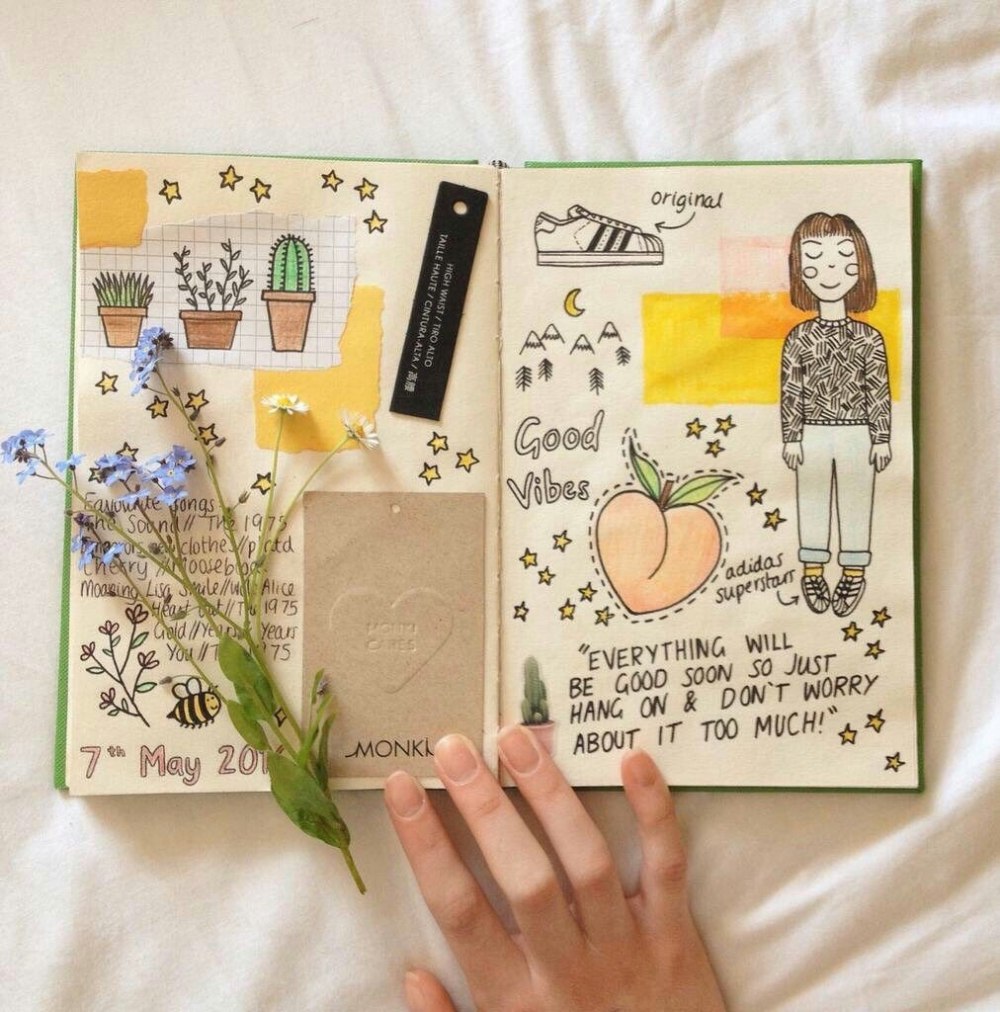 HIGH WAIST / TIRO ALTO
TAILLE HAUTE / CINTURA ALTA / 高腰
Favourite songs
The Sound // The 1975
clothes //
Cherry // Moose blood
Moaning Lisa Smile // Wolf Alice
Heart Out // The 1975
Gold // Years & Years
You // The 1975
7th May 201
MONKI
original
Good
Vibes
adidas
superstars
"EVERYTHING WILL
BE GOOD SOON SO JUST
HANG ON & DON'T WORRY
ABOUT IT TOO MUCH!"